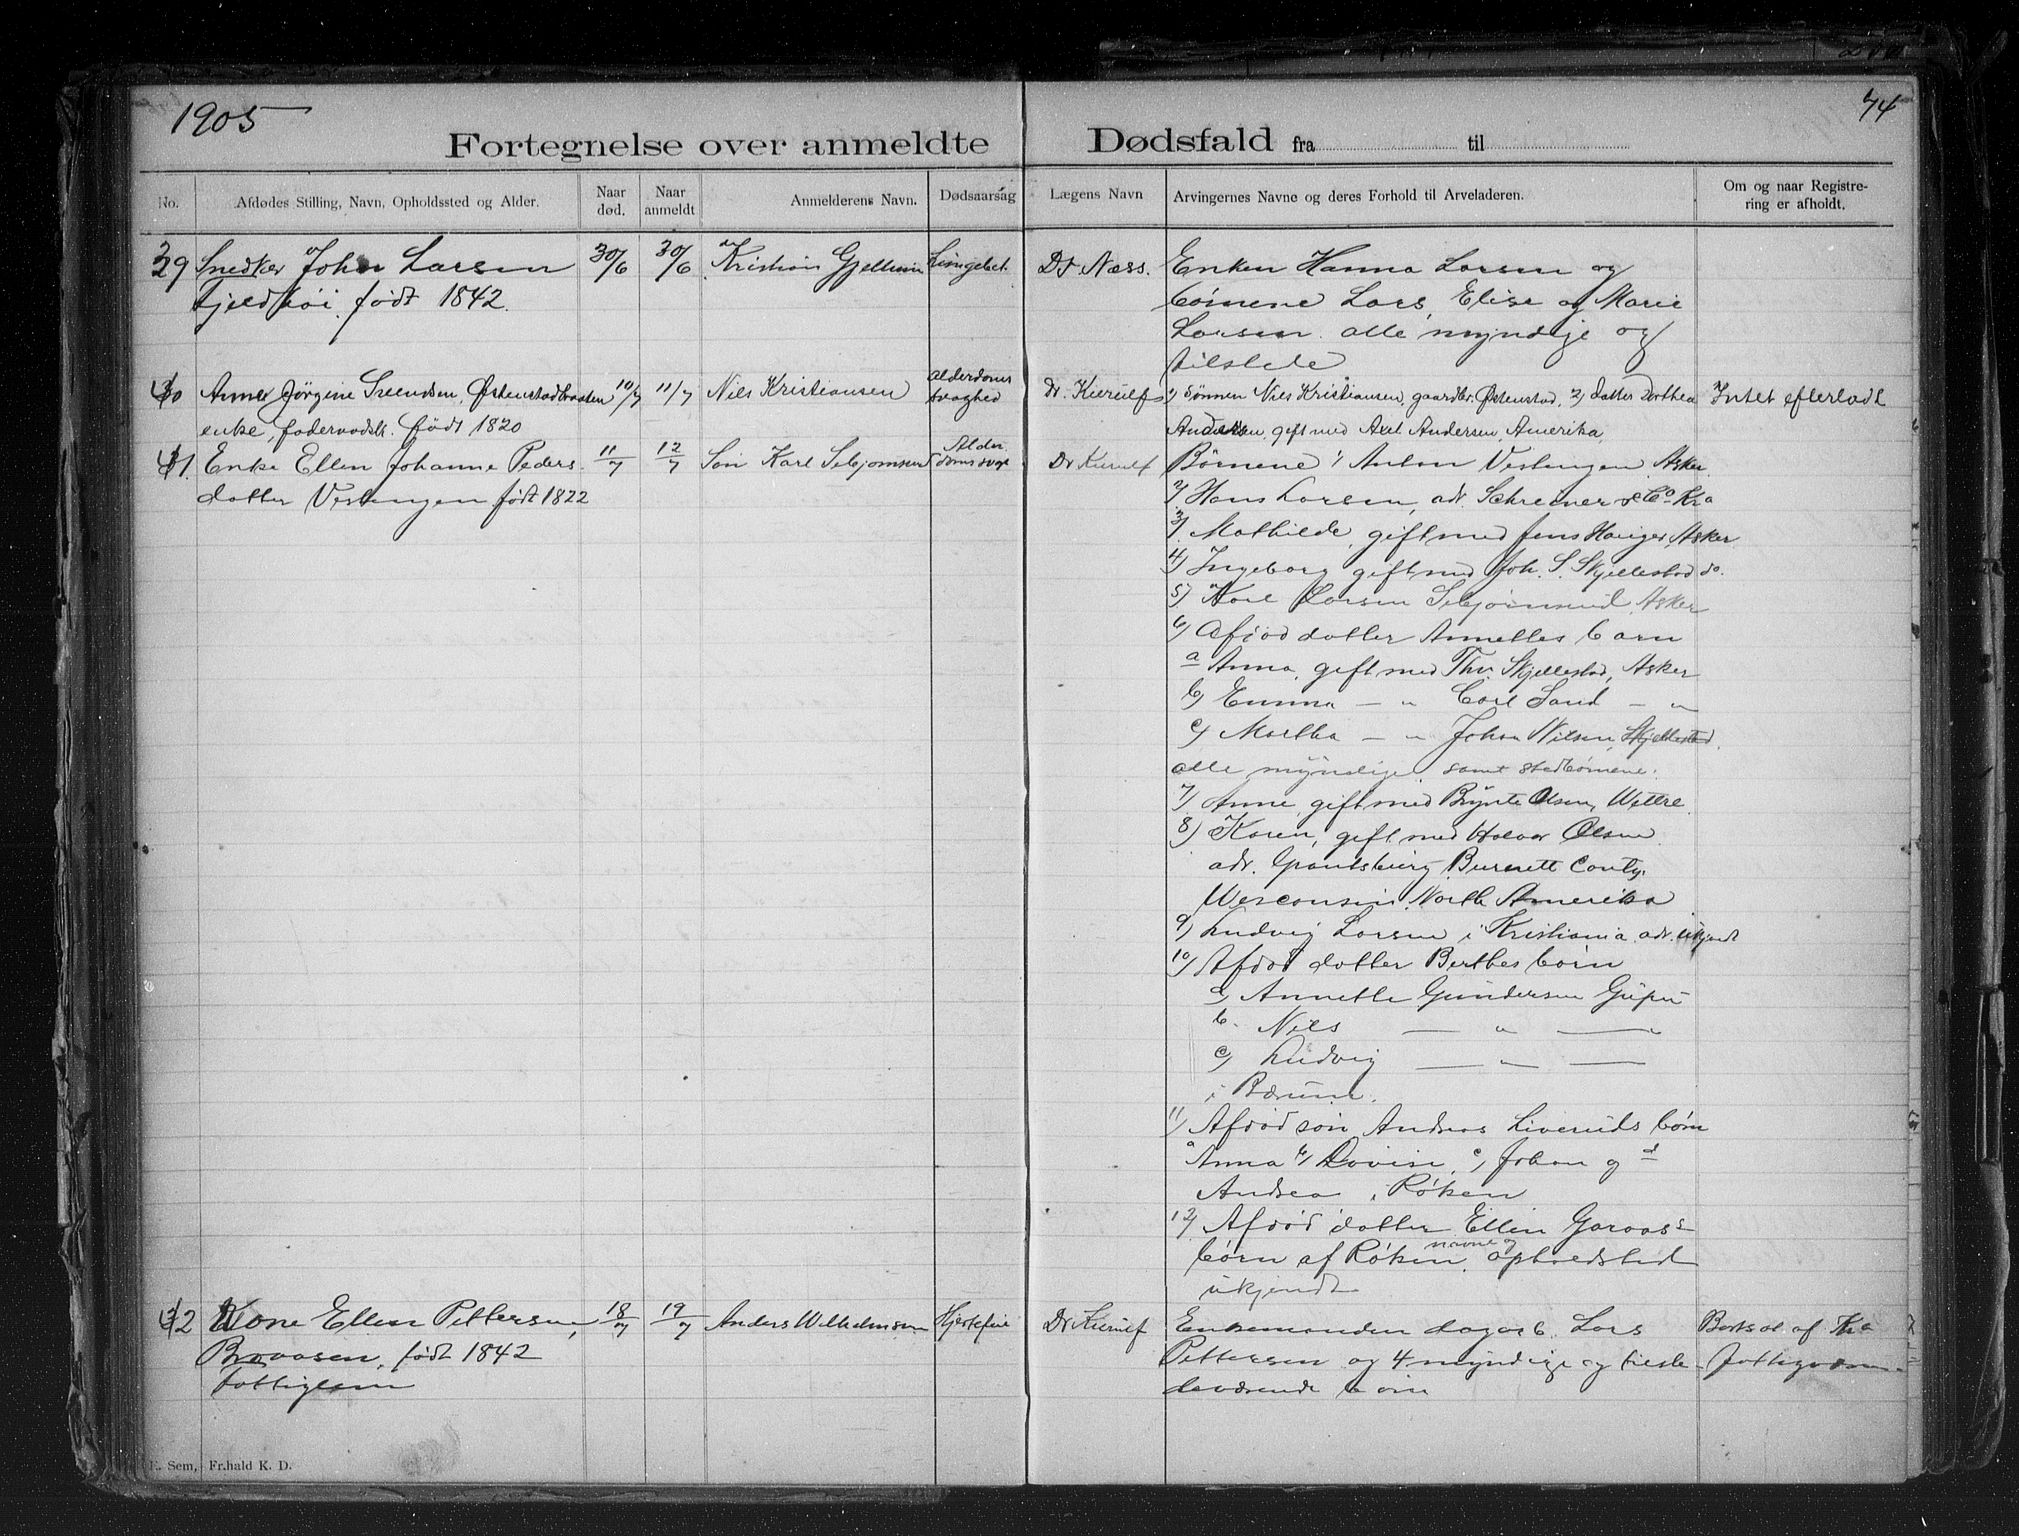 1905
74
Fortegnelse over anmeldte Dødsfald fra til
No.
Afdødes Stilling, Navn, Opholdssted og Alder.
Naar død.
Naar anmeldt
Anmelderens Navn.
Dødsaarsag
Lægens Navn
Arvingernes Navne og deres Forhold til Arveladeren.
Om og naar Registre-
ring er afholdt.
29 Snedker Johan Larsen 30/6 30/6 Kristian Gjellum Dr Næss. Enken Hanna Larsen og
født 1842. børnene Lars, Elise og Marie
Larsen alle myndige og
tilstede
30 Anne Jørgine Svendsen, Østenstadbraaten 10/7 11/7 Nils Kristiansen Alderdoms Dr. Kierulf 1) Sønnen Nils Kristiansen, gaardbr. Østenstad, 2) datter Dorthea Intet efterladt
svaghed
enke, føderaadsk. født 1820 Andersen, gift med Axel Andersen, Amerika,
31. Enke Ellen Johanne Peders 11/7 12/7 Søn Karl Alder Dr Kierulf Børnene 1/ Anton Vestengen Asker
doms svagh
datter Vestengen født 1822 2/ Hans Larsen, adr. Schreiner & Co Kra
3/ Mathilde, gift med Jens Asker
4/ Ingeborg gift med Joh. S. Skjellestad do.
5/ Karl Larsen Asker
6/ Afdød datter Annettes barn
a Anna, gift med Thv. Skjellestad, Asker
b/ Emma — " Carl Sand — "
c/ Martha — " Johan Nilsen, Skjellestad.
alle myndige samt stedbørnene.
7/ Anne, gift med Brynte Olsen, Wettre
8/ Karen, gift med Halvor Olsen
adr. Grantsburg Burnett Conty.
Wesconsin North Amerika
9/ Ludvig Larsen i Kristiania adr. ukjendt
10/ Afdød datter Berthes børn
a/ Annette Gundersen
b. Nils — " —
c/ Ludvig — " —
i Bærum.
11/ Afdød søn Andreas Liveruds børn
a Anna b/ Lovise, c/ Johan og d
Andrea i Røken
12/ Afdød datter Ellen
børn af Røken, navne og opholdsted
ukjendt
32 Kone Ellen Pettersen, 18/7 19/7 Anders Wilhelmsen Hjertefeil Dr Kierulf Enkemanden dagarb. Lars af Kra
Braasen, født 1842 Pettersen og 4 myndige og tilste- fattigvæsen
fattiglem deværende børn
E. Sem, Fr.hald K. D.